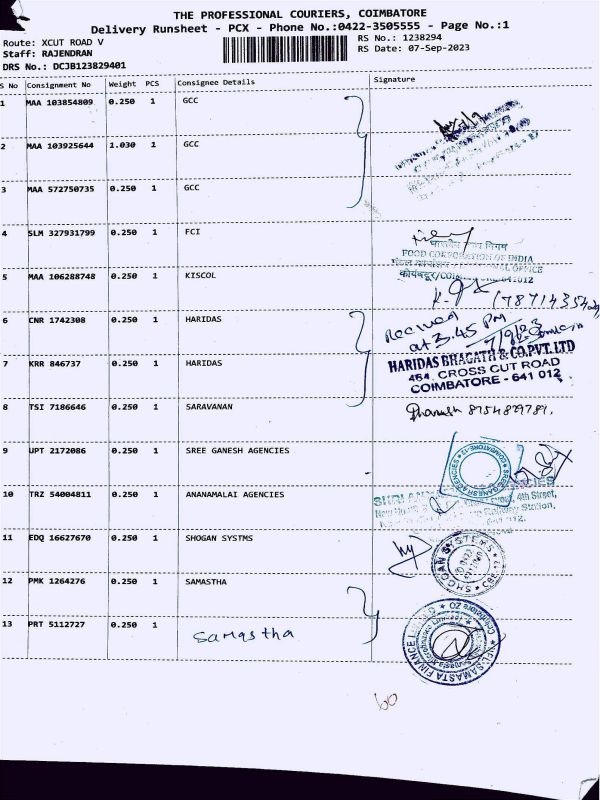 THE PROFESSIONAL COURIERS, COIMBATORE
Delivery Runsheet - PCX - Phone No.:0422-3505555 - Page No.:1
Route: XCUT ROAD V
RS No.: 1238294
Staff: RAJENDRAN
RS Date: 07-Sep-2023
DRS No.: DCJB123829401
S No Consignment No Weight PCS Consignee Details Signature
1 MAA 103854809 0.250 1 GCC
2 MAA 103925644 1.030 1 GCC
3 MAA 572750735 0.250 1 GCC
4 SLM 327931799 0.250 1 FCI
भारतीय खाद्य निगम
FOOD CORPORATION OF INDIA
5 MAA 106288748 0.250 1 KISCOL
6 CNR 1742308 0.250 1 HARIDAS
Received
at 3.45 PM
7/9/23
7 KRR 846737 0.250 1 HARIDAS
HARIDAS BHAGATH & CO.PVT.LTD
464, CROSS CUT ROAD
COIMBATORE - 641 012
8 TSI 7186646 0.250 1 SARAVANAN
Dhanush 8754829789.
9 UPT 2172086 0.250 1 SREE GANESH AGENCIES
SREE GANESH AGENCIES COIMBATORE-12
10 TRZ 54004811 0.250 1 ANANAMALAI AGENCIES
4th Street,
Railway Station,
11 EDQ 16627670 0.250 1 SHOGAN SYSTMS
SHOGAN SYSTEMS
12 PMK 1264276 0.250 1 SAMASTHA
13 PRT 5112727 0.250 1
Samastha
SAMASTA FINANCE LIMITED
60